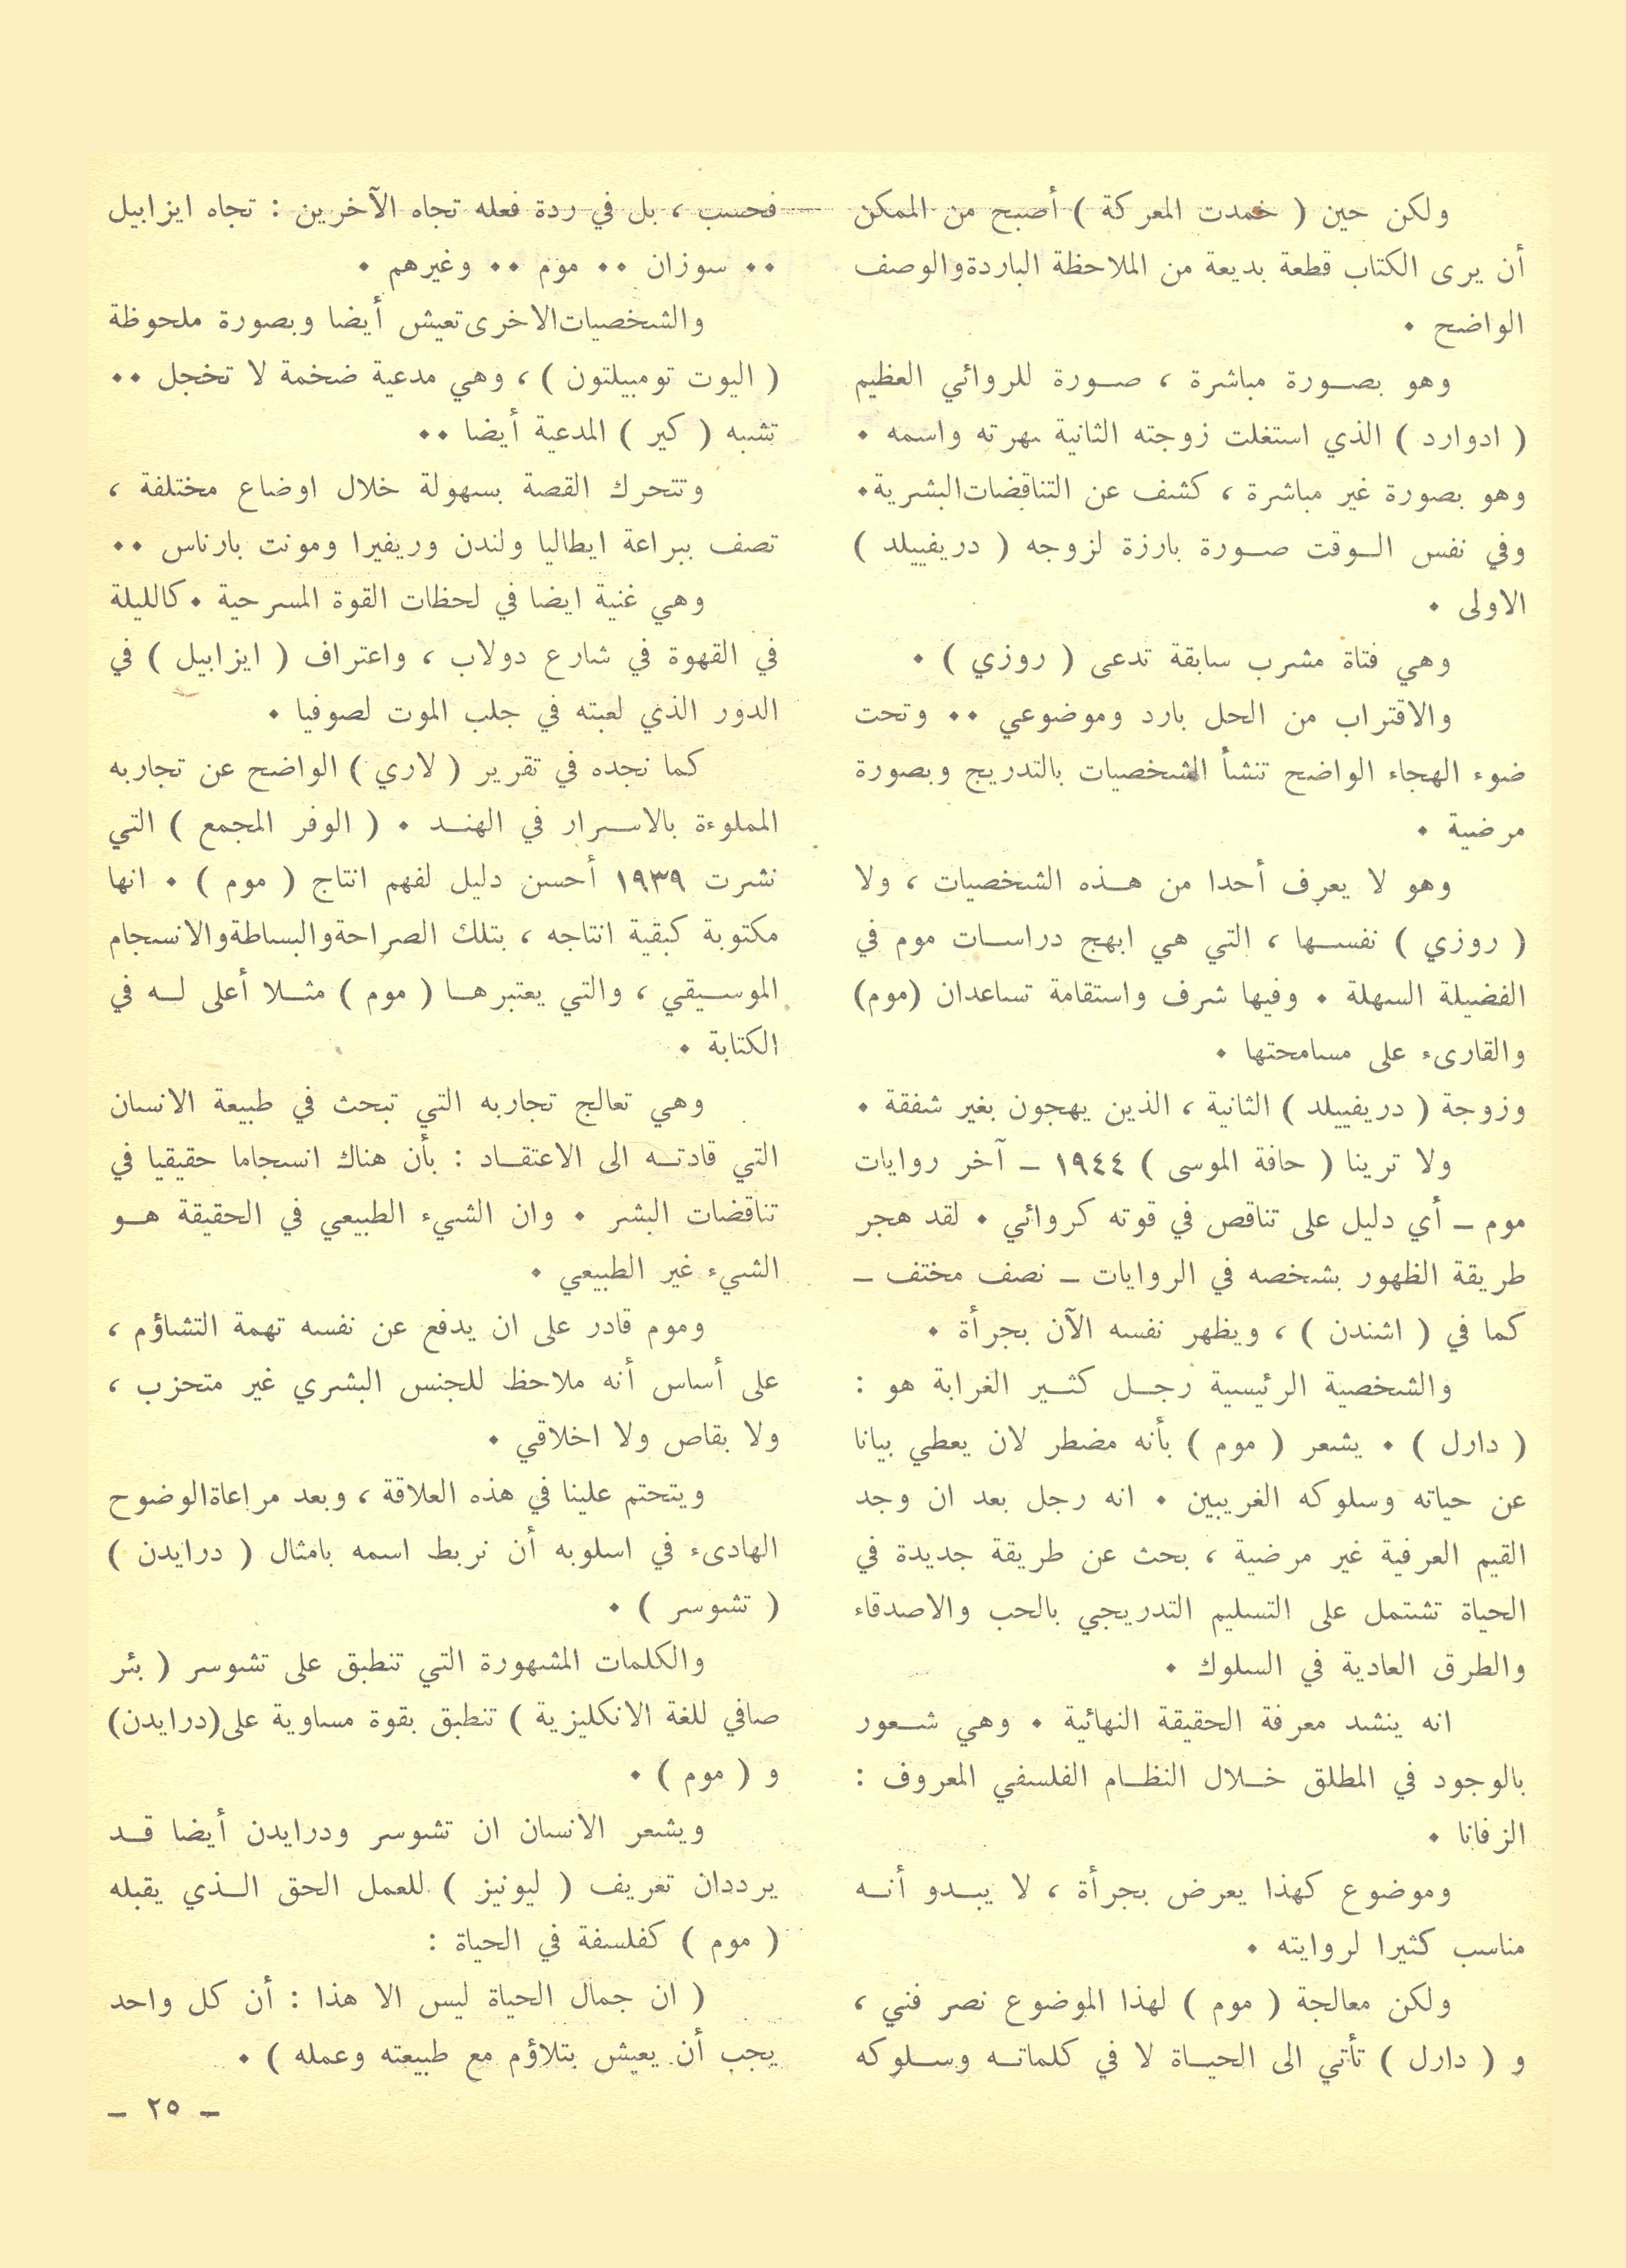 ولكن حين ( خمدت المعركة ) أصبح من الممكن
أن يرى الكتاب قطعة بديعة من الملاحظة الباردة والوصف
الواضح .
وهو بصورة مباشرة ، صورة للروائي العظيم
( ادوارد ) الذي استغلت زوجته الثانية بهرته واسمه .
وهو بصورة غير مباشرة ، كشف عن التناقضات البشرية .
وفي نفس الوقت صورة بارزة لزوجه ( دريفييلد )
الاولى .
وهي فتاة مشرب سابقة تدعى ( روزي ) .
والاقتراب من الحل بارد وموضوعي .. وتحت
ضوء الهجاء الواضح تنشأ الشخصيات بالتدريج وبصورة
مرضية .
وهو لا يعرف أحدا من هذه الشخصيات ، ولا
( روزي ) نفسها ، التي هي ابهج دراسات موم في
الفضيلة السهلة . وفيها شرف واستقامة تساعدان (موم)
والقارىء على مسامحتها .
وزوجة ( دريفييلد ) الثانية ، الذين يهجون بغير شفقة .
ولا ترينا ( حافة الموسى ) ١٩٤٤ – آخر روايات
موم – أي دليل على تناقص في قوته كروائي . لقد هجر
طريقة الظهور بشخصه في الروايات – نصف مختف –
كما في ( اشندن ) ، ويظهر نفسه الآن بجرأة .
والشخصية الرئيسية رجل كثير الغرابة هو :
( دارل ) . يشعر ( موم ) بأنه مضطر لان يعطي بيانا
عن حياته وسلوكه الغريبين . انه رجل بعد ان وجد
القيم العرفية غير مرضية ، بحث عن طريقة جديدة في
الحياة تشتمل على التسليم التدريجي بالحب والاصدقاء
والطرق العادية في السلوك .
انه ينشد معرفة الحقيقة النهائية . وهي شعور
بالوجود في المطلق خلال النظام الفلسفي المعروف :
الزفانا .
وموضوع كهذا يعرض بجرأة ، لا يبدو أنه
مناسب كثيرا لروايته .
ولكن معالجة ( موم ) لهذا الموضوع نصر فني ،
و ( دارل ) تأتي الى الحياة لا في كلماته وسلوكه
فحسب ، بل في ردة فعله تجاه الآخرين : تجاه ايزابيل
.. سوزان .. موم .. وغيرهم .
والشخصيات الاخرى تعيش أيضا وبصورة ملحوظة
( اليوت تومبيلتون ) ، وهي مدعية ضخمة لا تخجل ..
تشبه ( كير ) المدعية أيضا ..
وتتحرك القصة بسهولة خلال اوضاع مختلفة ،
تصف ببراعة ايطاليا ولندن وريفيرا ومونت بارناس ..
وهي غنية ايضا في لحظات القوة المسرحية . كالليلة
في القهوة في شارع دولاب ، واعتراف ( ايزابيل ) في
الدور الذي لعبته في جلب الموت لصوفيا .
كما نجده في تقرير ( لاري ) الواضح عن تجاربه
المملوءة بالاسرار في الهند . ( الوفر المجمع ) التي
نشرت ١٩٣٩ أحسن دليل لفهم انتاج ( موم ) . انها
مكتوبة كبقية انتاجه ، بتلك الصراحة والبساطة والانسجام
الموسيقي ، والتي يعتبرها ( موم ) مثلا أعلى له في
الكتابة .
وهي تعالج تجاربه التي تبحث في طبيعة الانسان
التي قادته الى الاعتقاد : بأن هناك انسجاما حقيقيا في
تناقضات البشر . وان الشيء الطبيعي في الحقيقة هو
الشيء غير الطبيعي .
وموم قادر على ان يدفع عن نفسه تهمة التشاؤم ،
على أساس أنه ملاحظ للجنس البشري غير متحزب ،
ولا بقاص ولا اخلاقي .
ويتحتم علينا في هذه العلاقة ، وبعد مراعاة الوضوح
الهادىء في اسلوبه أن نربط اسمه بامثال ( درايدن )
( تشوسر ) .
والكلمات المشهورة التي تنطبق على تشوسر ( بئر
صافي للغة الانكليزية ) تنطبق بقوة مساوية على (درايدن)
و ( موم ) .
ويشعر الانسان ان تشوسر ودرايدن أيضا قد
يرددان تعريف ( ليونيز ) للعمل الحق الذي يقبله
( موم ) كفلسفة في الحياة :
( ان جمال الحياة ليس الا هذا : أن كل واحد
يجب أن يعيش بتلاؤم مع طبيعته وعمله ) .
– ٢٥ –